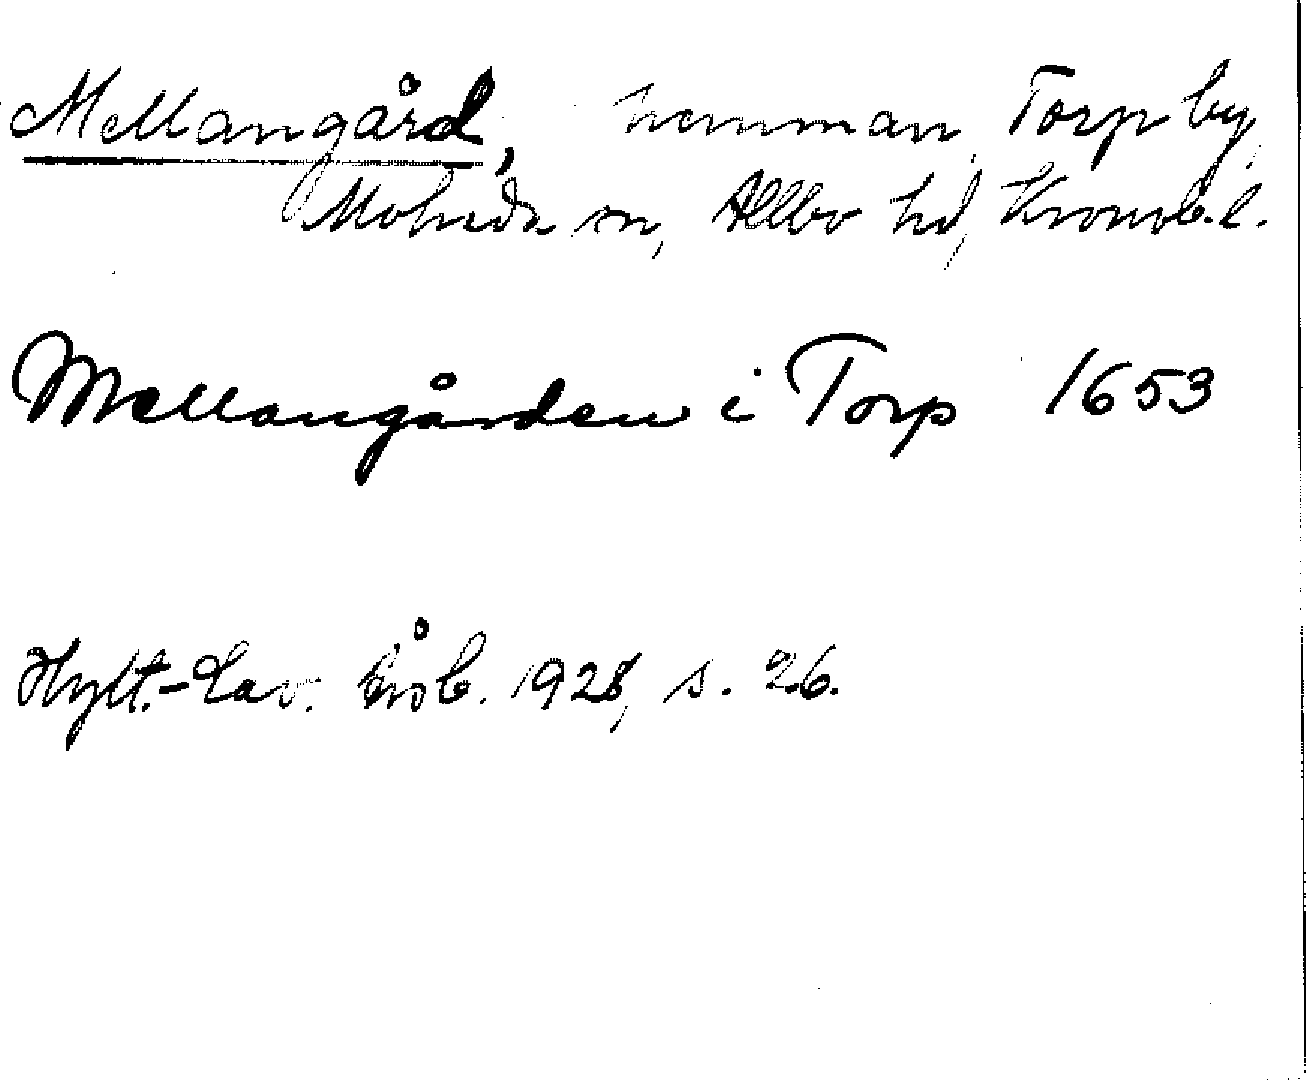 Mellangård, hemman, Torp by,
Moheda sn, Allbo hd, Kronob. l.
Mellangården i Torp 1653
Hylt.-Cav. årsb. 1928, s. 26.